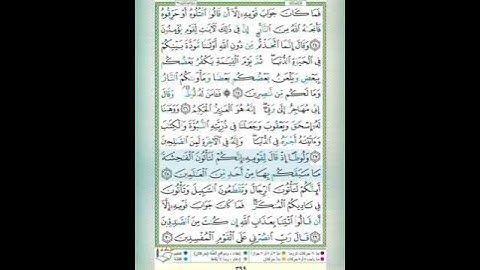 فَمَا كَانَ جَوَابَ قَوْمِهِۦٓ إِلَّآ أَن قَالُوا۟ ٱقْتُلُوهُ أَوْ حَرِّقُوهُ
فَأَنجَىٰهُ ٱللَّهُ مِنَ ٱلنَّارِ إِنَّ فِى ذَٰلِكَ لَـَٔايَـٰتٍ لِّقَوْمٍ يُؤْمِنُونَ
٢٤ وَقَالَ إِنَّمَا ٱتَّخَذْتُم مِّن دُونِ ٱللَّهِ أَوْثَـٰنًا مَّوَدَّةَ بَيْنِكُمْ
فِى ٱلْحَيَوٰةِ ٱلدُّنْيَا ثُمَّ يَوْمَ ٱلْقِيَـٰمَةِ يَكْفُرُ بَعْضُكُم
بِبَعْضٍ وَيَلْعَنُ بَعْضُكُم بَعْضًا وَمَأْوَىٰكُمُ ٱلنَّارُ
وَمَا لَكُم مِّن نَّـٰصِرِينَ ٢٥ ۞ فَـَٔامَنَ لَهُۥ لُوطٌ وَقَالَ
إِنِّى مُهَاجِرٌ إِلَىٰ رَبِّىٓ إِنَّهُۥ هُوَ ٱلْعَزِيزُ ٱلْحَكِيمُ ٢٦ وَوَهَبْنَا
لَهُۥٓ إِسْحَـٰقَ وَيَعْقُوبَ وَجَعَلْنَا فِى ذُرِّيَّتِهِ ٱلنُّبُوَّةَ وَٱلْكِتَـٰبَ
وَءَاتَيْنَـٰهُ أَجْرَهُۥ فِى ٱلدُّنْيَا وَإِنَّهُۥ فِى ٱلْـَٔاخِرَةِ لَمِنَ ٱلصَّـٰلِحِينَ
٢٧ وَلُوطًا إِذْ قَالَ لِقَوْمِهِۦٓ إِنَّكُمْ لَتَأْتُونَ ٱلْفَـٰحِشَةَ
مَا سَبَقَكُم بِهَا مِنْ أَحَدٍ مِّنَ ٱلْعَـٰلَمِينَ ٢٨
أَئِنَّكُمْ لَتَأْتُونَ ٱلرِّجَالَ وَتَقْطَعُونَ ٱلسَّبِيلَ وَتَأْتُونَ
فِى نَادِيكُمُ ٱلْمُنكَرَ فَمَا كَانَ جَوَابَ قَوْمِهِۦٓ إِلَّآ
أَن قَالُوا۟ ٱئْتِنَا بِعَذَابِ ٱللَّهِ إِن كُنتَ مِنَ ٱلصَّـٰدِقِينَ
٢٩ قَالَ رَبِّ ٱنصُرْنِى عَلَى ٱلْقَوْمِ ٱلْمُفْسِدِينَ ٣٠
٣٩٩